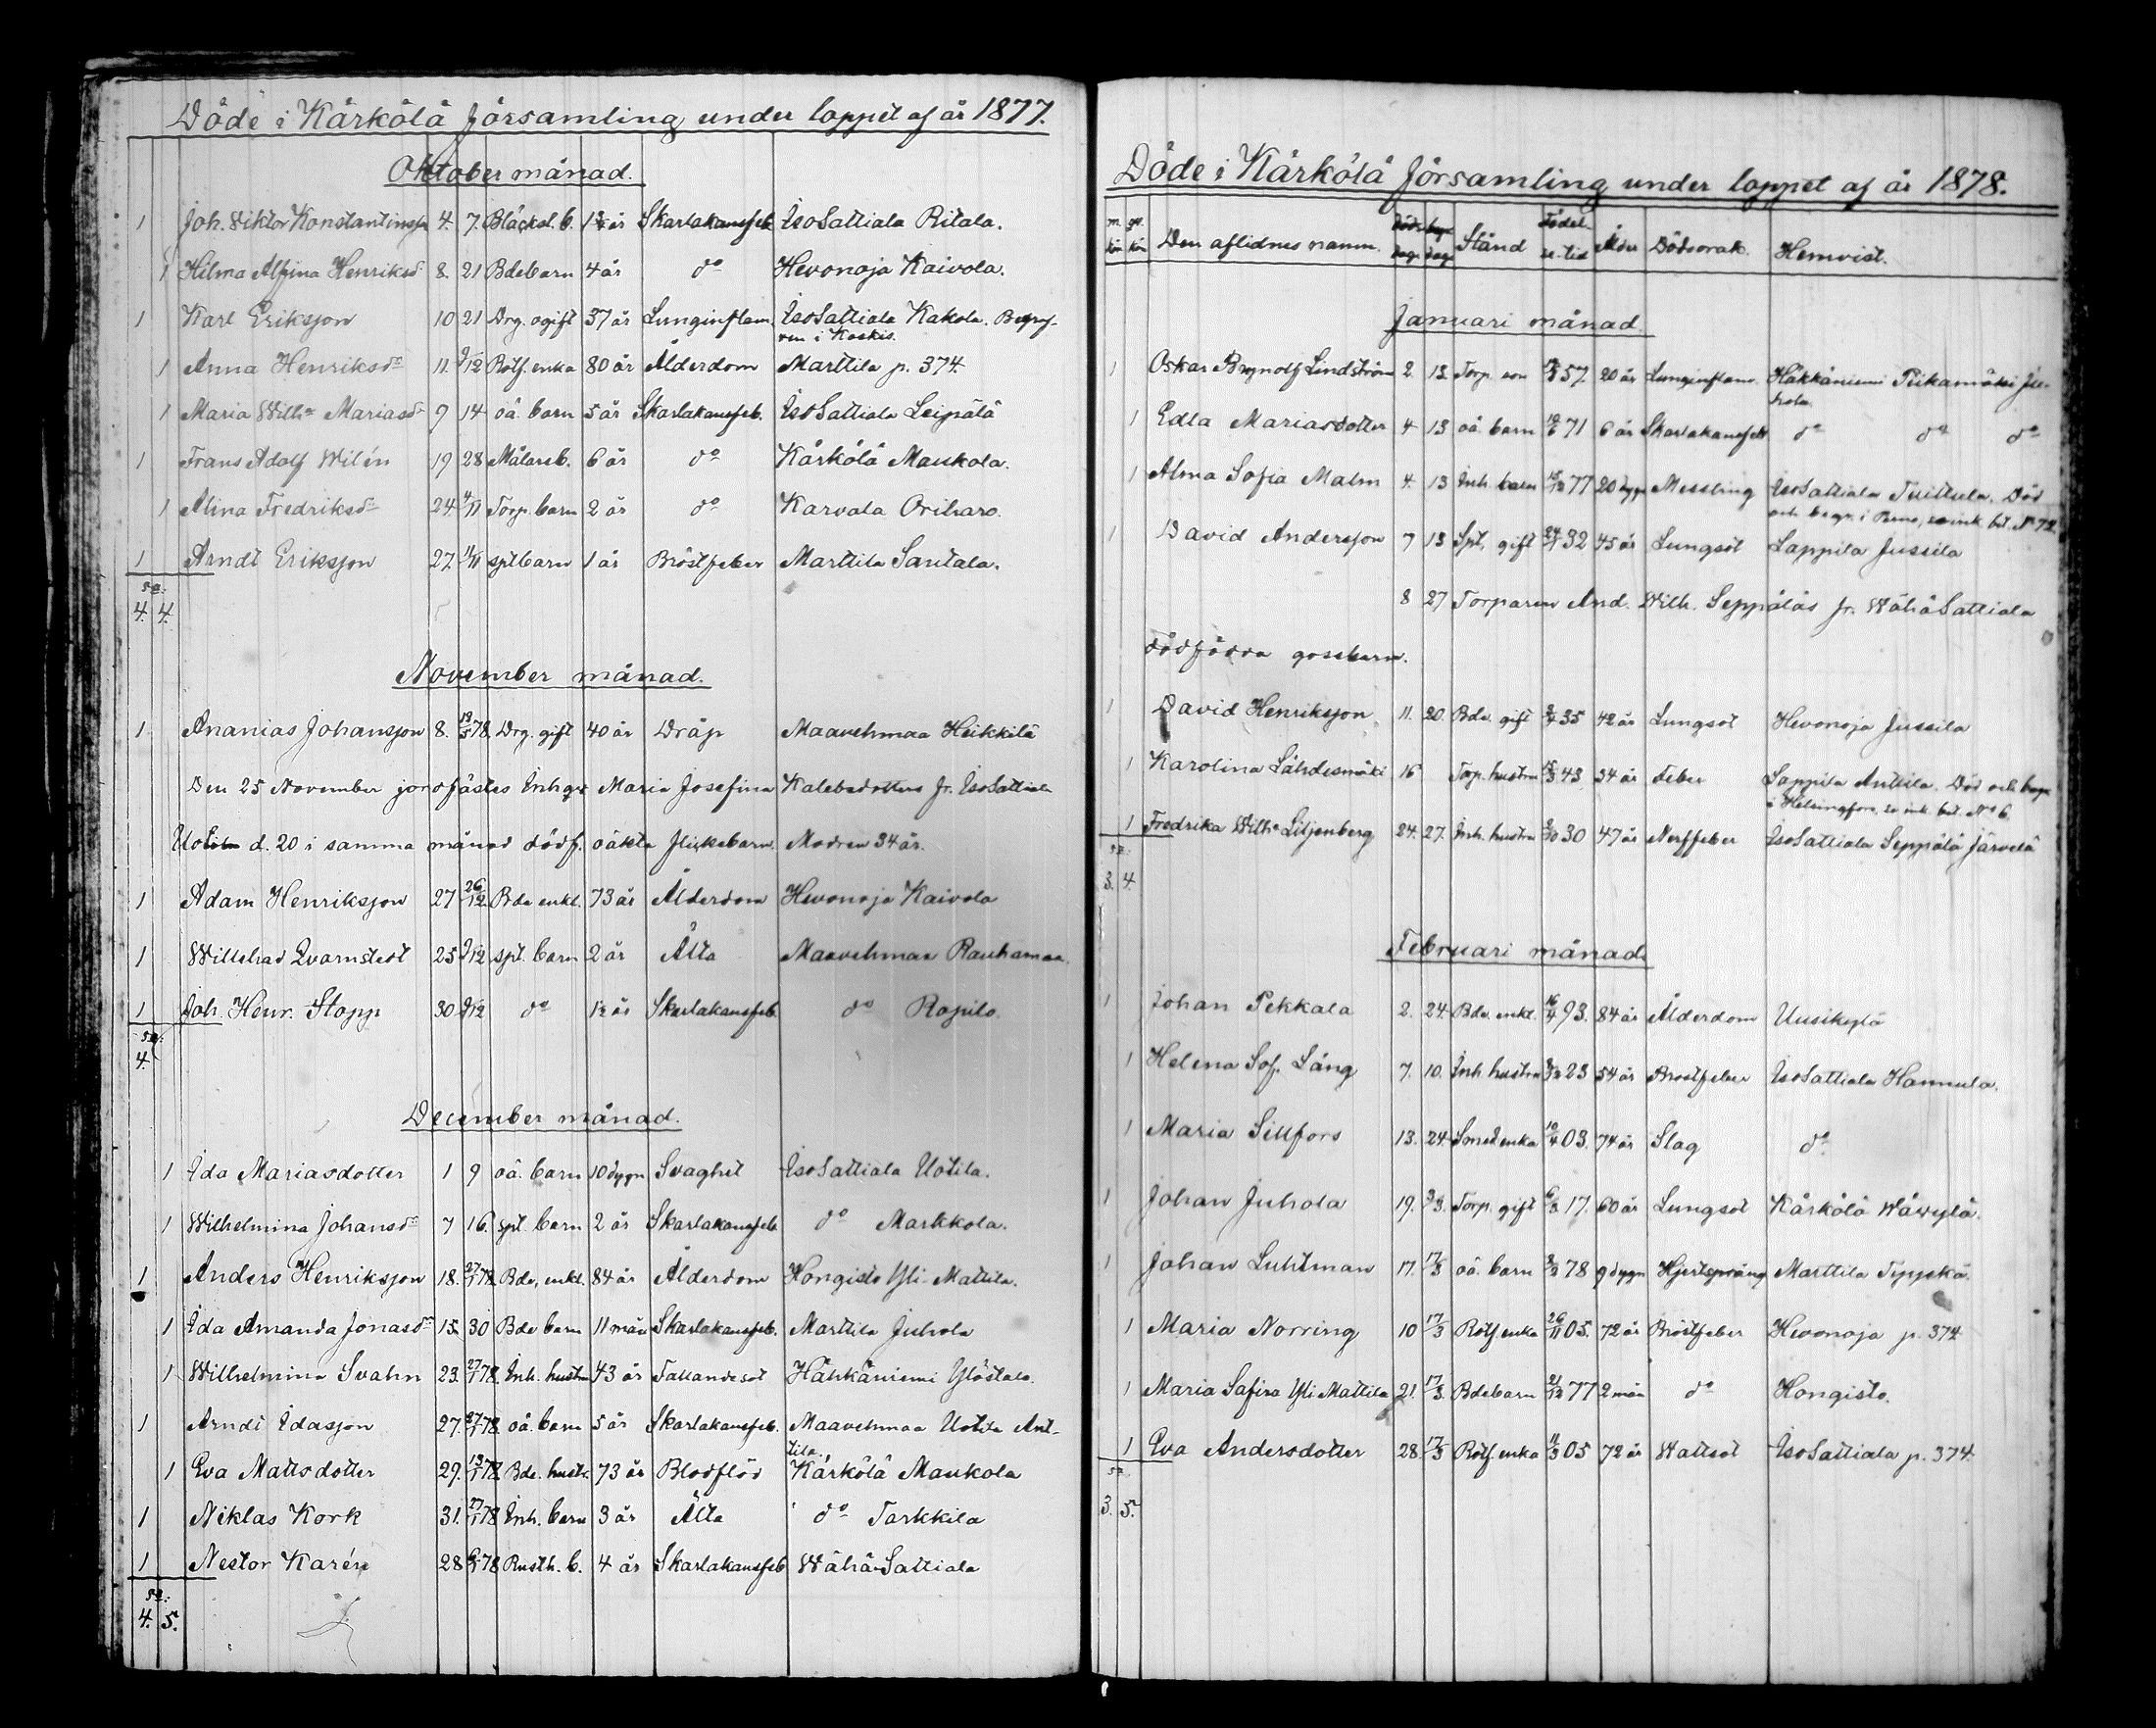 Döde i Kärkölä församling under loppet af år 1877.
Oktober månad.
1 Joh. Viktor Konstantinsson 4. 7. Bläcksl. b. år Skarlakansfeb. IsoSattiala Ritala.
1 Hilma Alfina Henriksdr 8. 21 Bdebarn 4 år do Hevonoja Kaivola.
1 Karl Eriksson 10 21 Drg. ogift 37 år Lunginflam. IsoSattiala Kakola. Begraf-
ven i Koskis.
1 Anna Henriksdr 11. 9/12 Rotf. enka 80 år Ålderdom Marttila p. 374.
1 Maria Wilha Mariasdr 9 14 oä. barn 5 år Skarlakansfeb. IsoSattiala Leipälä
1 Frans Adolf Wilén 19 28 Målareb. 6 år do Kärkölä Maukola.
1 Alina Fredriksdr 24. 4/11 Torp. barn 2 år do Karvala Oriharo.
1 Arndt Eriksson 27. 11/11 sptbarn 1 år Bröstfeber Marttila Santala.
Sa:
4. 4.
November månad.
1 Ananias Johansson 8. 78. Drg. gift 40 år Dråp Maavehmaa Heikkilä
Den 25 November jordfästes Inhqv Maria Josefina Kalebsdotters fr. IsoSattiala
Uotila d. 20 i samma månad dödf. oäkta flickebarn. Modren 34 år.
1 Adam Henriksson 27 26/12. Bde enkl. 73 år Ålderdom Hevonoja Kaivola
1 Willehad Qvarnstedt 25 9/12 spt. barn 2 år Älta Maavehmaa Rauhamaa.
1 Joh. Henr. Stopp 30 9/12 do 1½ år Skarlakansfeb. do Ropilo.
Sa:
4.
December månad.
1 Ida Mariasdotter 1 9 oä. barn 10 dygn Svaghet IsoSattiala Uotila.
1 Wilhelmina Johansdr 7 16. spt. barn 2 år Skarlakansfeb. do Markkola.
1 Anders Henriksson 18. 27/1 78. Bde, enkl. 84 år Ålderdom Hongisto Yli Mattila.
1 Ida Amanda Jonasdr 15. 30 Bde barn 11 mån Skarlakansfeb. Marttila Juhola
1 Wilhelmina Svahn 23. 27/1 78. Inh. hustru 43 år Fallandesot Hähkäniemi Ylöstalo.
1 Arndt Idasson 27. 27/1 78. oä. barn 5 år Skarlakansfeb. Maavehmaa Uotila Ant-
tila.
1 Eva Mattsdotter 29. 13/1 78. Bde. hustr. 73 år Blodflöd Kärkölä Maukola
1 Niklas Kork 31. 27/1 78 Inh. barn 3 år Älta do Tarkkila
1 Nestor Karén 28 6/1 78 Rusth. b. 4 år Skarlakansfeb WähäSattiala
Sa:
4. 5.
Döde i Kärkölä församling under loppet af år 1878.
m. kön qv. kön Den aflidnes namn. Döds dag. begr. dag. Stånd Födel-se-tid Ålder Dödsorsak. Hemvist.
Januari månad.
1 Oskar Brynolf Lindström 2. 13. Torp. son 57. 20 år Lunginflam. Häkkäniemi Pukamäki Ju-
hola.
1 Edla Mariasdotter 4 13 oä. barn 71 6 år Skarlakansfeb do do do
1 Alma Sofia Malm 4. 13 Inh. barn 15/12 77 20 dygn Messling IsoSattiala Tuittula. Död
och begr. i Perno, se ink. bet. No 72.
1 David Andersson 7 13 Spt, gift 24/1 32 45 år Lungsot Lappila Jussila
8 27 Torparen And. Wilh. Seppäläs fr. WähäSattiala
dödfödda gossebarn.
1 David Henriksson 11. 20. Bde. gift 35 42 år Lungsot Hevonoja Jussila
1 Karolina Lähdesmäki 16 Torp. hustru 43 34 år Feber Lappila Anttila. Död och begr.
i Helsingfors, se ink. bet. No 6.
1 Fredrika Wilha Liljenberg 24. 27. Inh. hustru 30 47 år Nerffeber IsoSattiala Seppälä Järvelä
Sa:
3. 4.
Februari månad.
1 Johan Pekkala 2. 24. Bde. enkl. 93. 84 år Ålderdom Uusikylä
1 Helena Sof. Lång 7. 10. Inh hustru 23 54 år Bröstfeber IsoSattiala Hannula.
1 Maria Sillfors 13. 24. Smed enka 10/4 03. 74 år Slag do
1 Johan Juhola 19. 3/3. Torp. gift 17. 60 år Lungsot Kärkölä Wäkylä.
1 Johan Luhtman 17. 17/3 oä. barn 78 9 dygn Hjertsprång Marttila Typpkä
1 Maria Norring 10 17/3 Rotf enka 26/11 05. 72 år Bröstfeber Hevonoja p. 374
1 Maria Safira Yli Mattila 21. 17/3. Bdebarn 21/12 77 2 mån do Hongisto.
1 Eva Andersdotter 28. 17/3 Rotf. enka 05 72 år Wattsot IsoSattiala p. 374.
Sa.
3. 5.